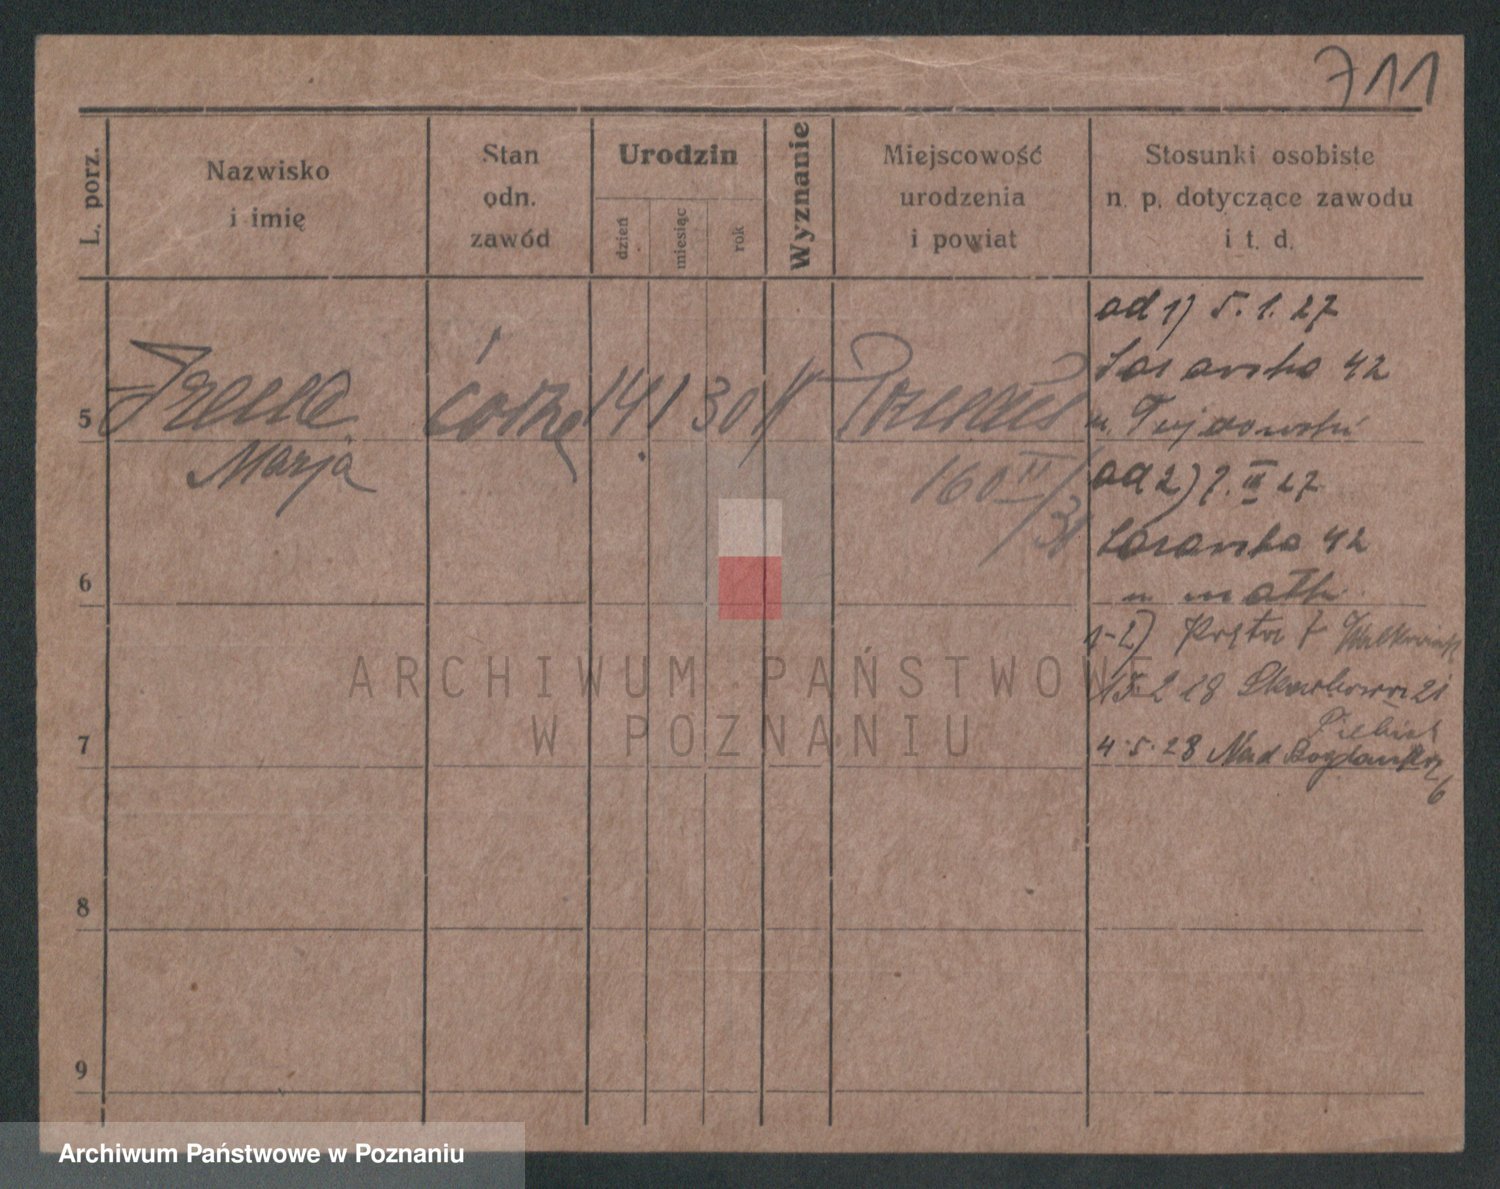 711
L. porz.
Nazwisko
i imię
Stan
odn.
zawód
Urodzin
dzień
miesiąc
rok
Wyznanie
Miejscowość
urodzenia
i powiat
Stosunki osobiste
n. p. dotyczące zawodu
i t. d.
5
Irena
Marja
córka
14 1 30
Poznań
160 II/31
od 1) 5. 1. 27
42
od 2) 7. III 27
42
u matk.
6
1-2) Kręta 7
15 2 28 Skarbowa 21
4. 5. 28 Nad Bogdanką
6
7
8
9
ARCHIWUM PAŃSTWOWE
W POZNANIU
Archiwum Państwowe w Poznaniu